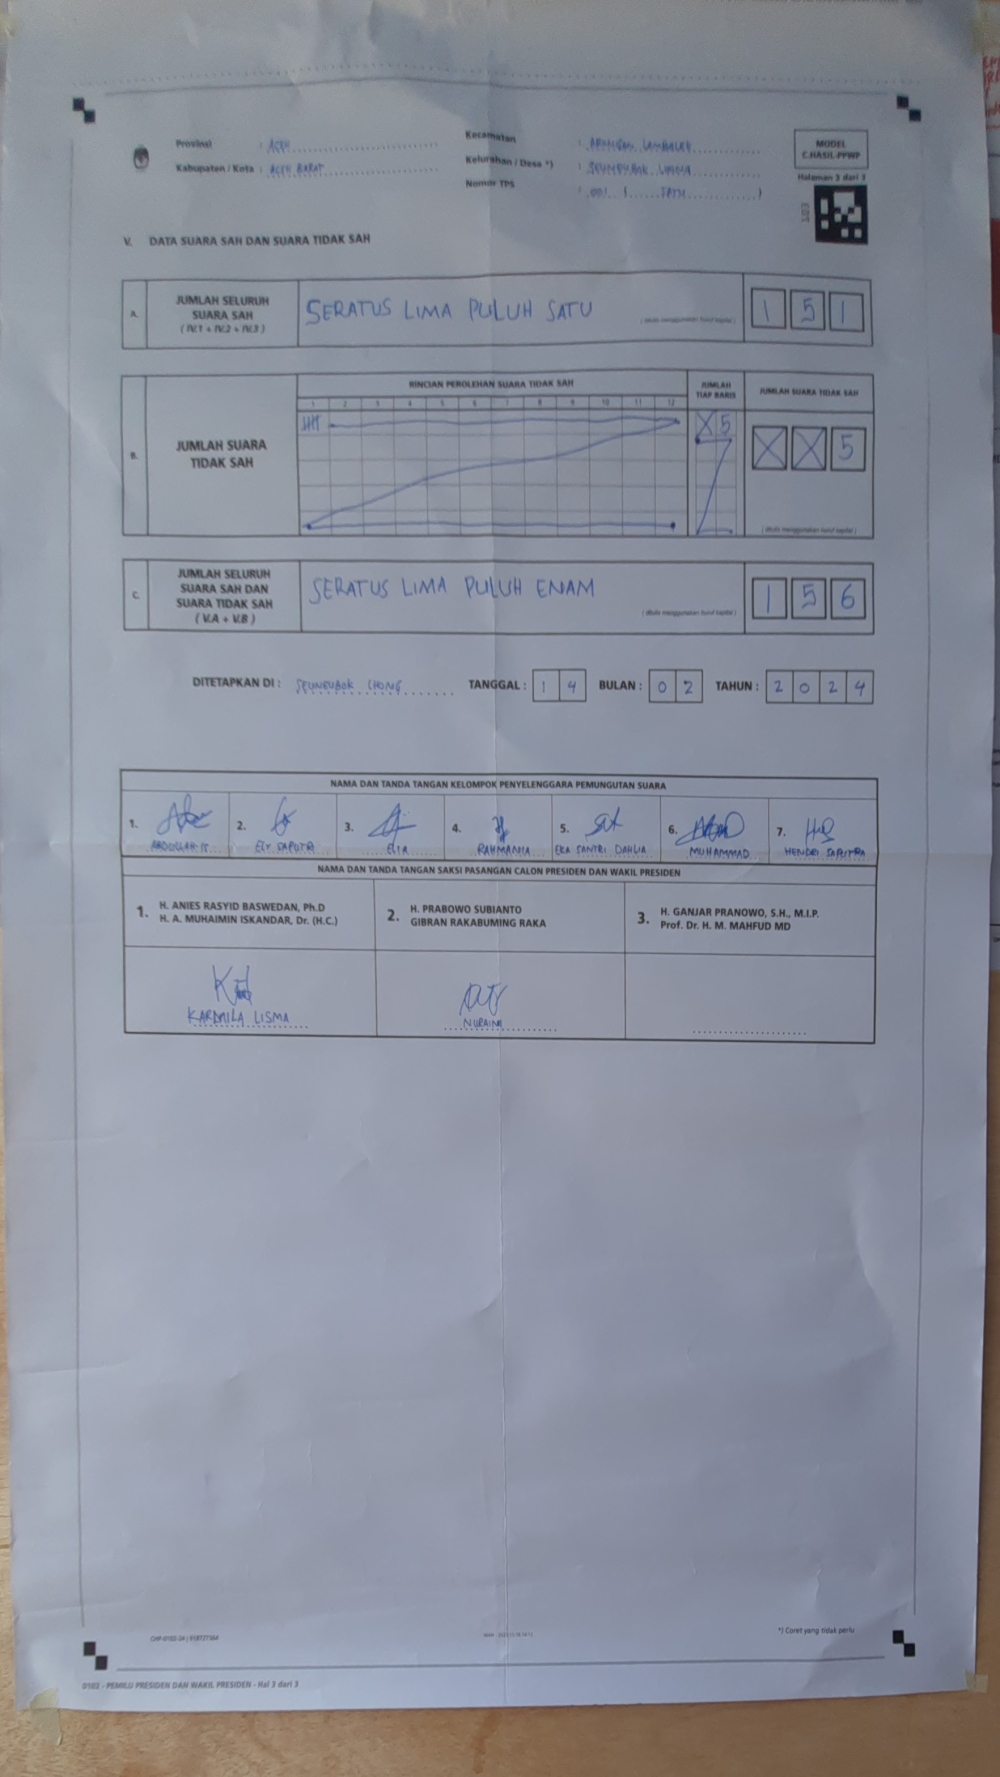 Provinsi : ACEH
Kabupaten / Kota : ACEH BARAT
Kecamatan : ARONGAN LAMBALEK
Kelurahan / Desa *) : SEUNEUBOK
Nomor TPS : 001 ( SATU )
MODEL
C.HASIL-PPWP
Halaman 3 dari 3
V. DATA SUARA SAH DAN SUARA TIDAK SAH
A. JUMLAH SELURUH SUARA SAH ( IV.1 + IV.2 + IV.3 ) SERATUS LIMA PULUH SATU ( ditulis menggunakan huruf kapital ) 1 5 1
RINCIAN PEROLEHAN SUARA TIDAK SAH JUMLAH TIAP BARIS JUMLAH SUARA TIDAK SAH
1 2 3 4 5 6 7 8 9 10 11 12
B. JUMLAH SUARA TIDAK SAH X 5 X X 5
( ditulis menggunakan huruf kapital )
C. JUMLAH SELURUH SUARA SAH DAN SUARA TIDAK SAH ( V.A + V.B ) SERATUS LIMA PULUH ENAM ( ditulis menggunakan huruf kapital ) 1 5 6
DITETAPKAN DI : SEUNEUBOK LHONG TANGGAL : 1 4 BULAN : 0 2 TAHUN : 2 0 2 4
NAMA DAN TANDA TANGAN KELOMPOK PENYELENGGARA PEMUNGUTAN SUARA
1. 2. 3. 4. 5. 6. 7.
ABDULLAH IS SAPUTRA ELIA RAHMANIA EKA SANTRI DAHLIA MUHAMMAD HENDRI SAPUTRA
NAMA DAN TANDA TANGAN SAKSI PASANGAN CALON PRESIDEN DAN WAKIL PRESIDEN
1. H. ANIES RASYID BASWEDAN, Ph.D
H. A. MUHAIMIN ISKANDAR, Dr. (H.C.)
2. H. PRABOWO SUBIANTO
GIBRAN RAKABUMING RAKA
3. H. GANJAR PRANOWO, S.H., M.I.P.
Prof. Dr. H. M. MAHFUD MD
KARMILA LISMA NURAINI
*) Coret yang tidak perlu
0102 - PEMILU PRESIDEN DAN WAKIL PRESIDEN - Hal 3 dari 3